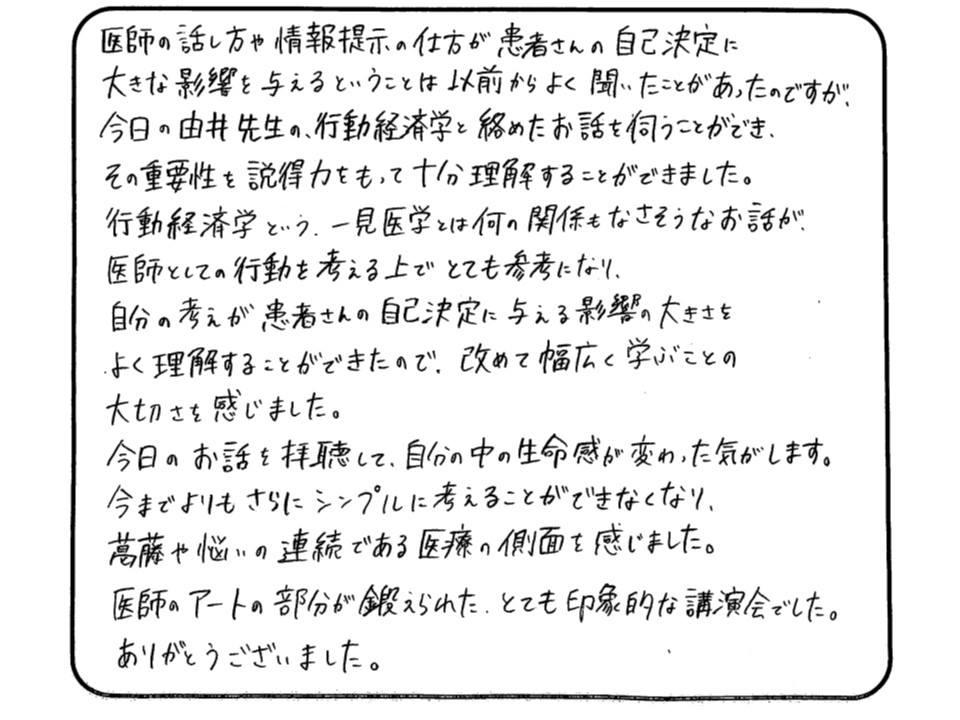 医師の話し方や情報提示の仕方が患者さんの自己決定に
大きな影響を与えるということは以前からよく聞いたことがあったのですが、
今日の由井先生の、行動経済学と絡めたお話を伺うことができ、
その重要性を説得力をもって十分理解することができました。
行動経済学という、一見医学とは何の関係もなさそうなお話が、
医師としての行動を考える上でとても参考になり、
自分の考えが患者さんの自己決定に与える影響の大きさを
よく理解することができたので、改めて幅広く学ぶことの
大切さを感じました。
今日のお話を拝聴して、自分の中の生命感が変わった気がします。
今までよりもさらにシンプルに考えることができなくなり、
葛藤や悩いの連続である医療の側面を感じました。
医師のアートの部分が鍛えられた、とても印象的な講演会でした。
ありがとうございました。